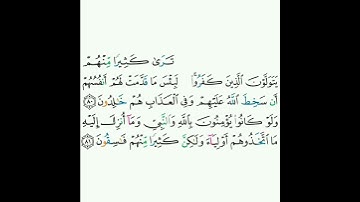 تَرَىٰ كَثِيرًا مِّنْهُمْ
يَتَوَلَّوْنَ الَّذِينَ كَفَرُوا۟ لَبِئْسَ مَا قَدَّمَتْ لَهُمْ أَنفُسُهُمْ
أَن سَخِطَ اللَّهُ عَلَيْهِمْ وَفِى الْعَذَابِ هُمْ خَٰلِدُونَ ٨٠
وَلَوْ كَانُوا۟ يُؤْمِنُونَ بِاللَّهِ وَالنَّبِىِّ وَمَآ أُنزِلَ إِلَيْهِ
مَا اتَّخَذُوهُمْ أَوْلِيَآءَ وَلَٰكِنَّ كَثِيرًا مِّنْهُمْ فَٰسِقُونَ ٨١